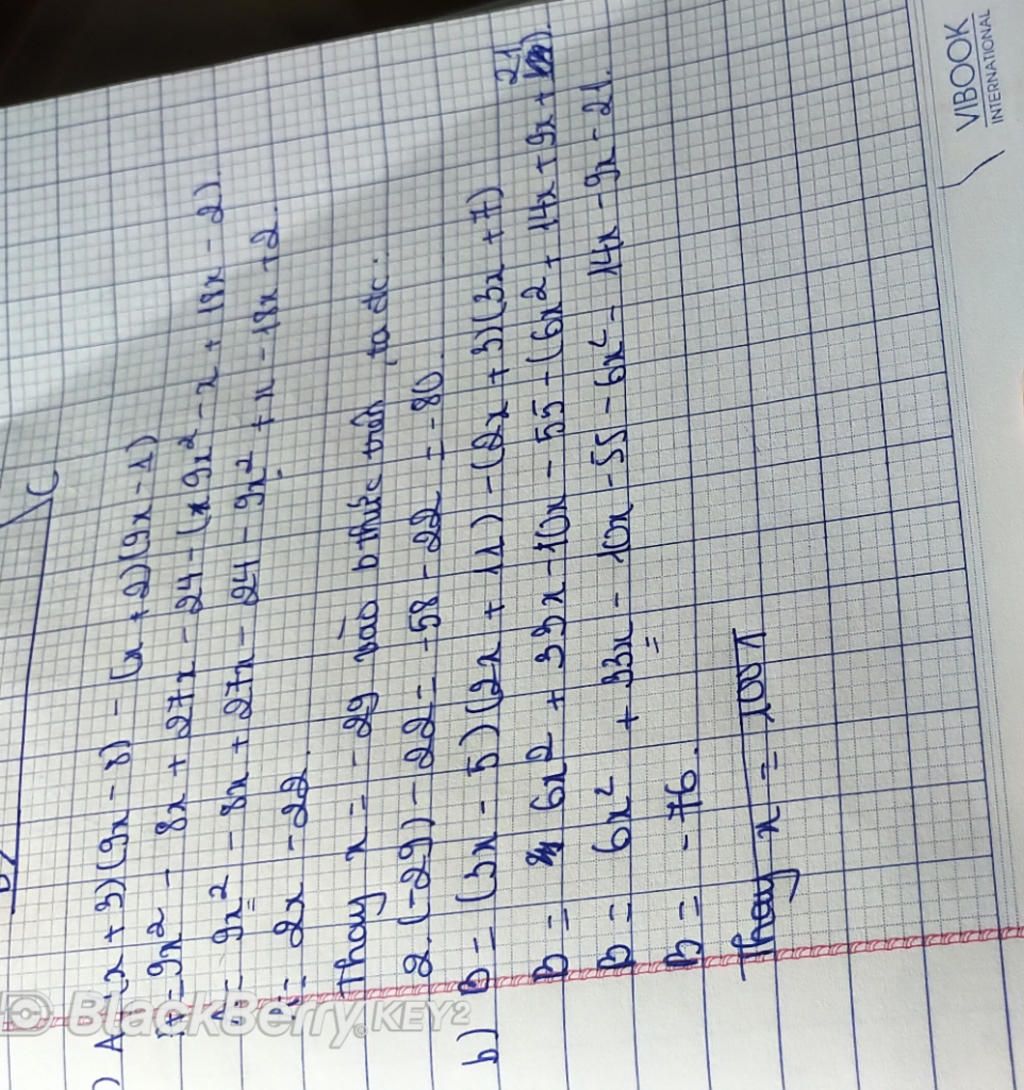 ) A = (x + 3)(9x - 8) - (x + 2)(9x - 1)
A = 9x² - 8x + 27x - 24 - (9x² - x + 18x - 2).
A = 9x² - 8x + 27x - 24 - 9x² + x - 18x + 2.
A = 2x - 22.
Thay x = - 29 vào b thức trên, ta dc:
2.(-29) - 22 = -58 - 22 = -80.
b) B = (3x - 5)(2x + 11) - (2x + 3)(3x + 7)
B = 6x² + 33x - 10x - 55 - (6x² + 14x + 9x + 21).
B = 6x² + 33x - 10x - 55 - 6x² - 14x - 9x - 21.
B = - 76.
Thay x =
VIBOOK
INTERNATIONAL
© BlackBerry KEY2